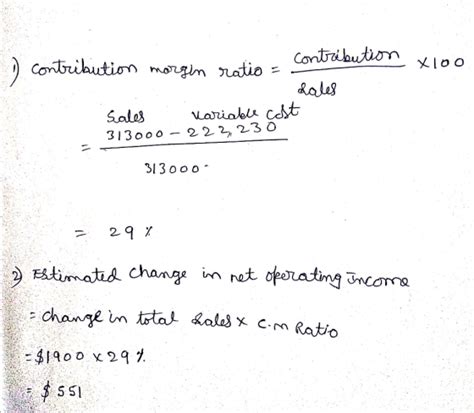 1) Contribution morgin ratio = Contribution / Sales × 100
Sales Variable cost
= 313000 - 222,230
313000.
= 29 %
2) Estimated Change in net operating Income
= Change in total Sales × C.m Ratio
= $1900 × 29 %.
= $551